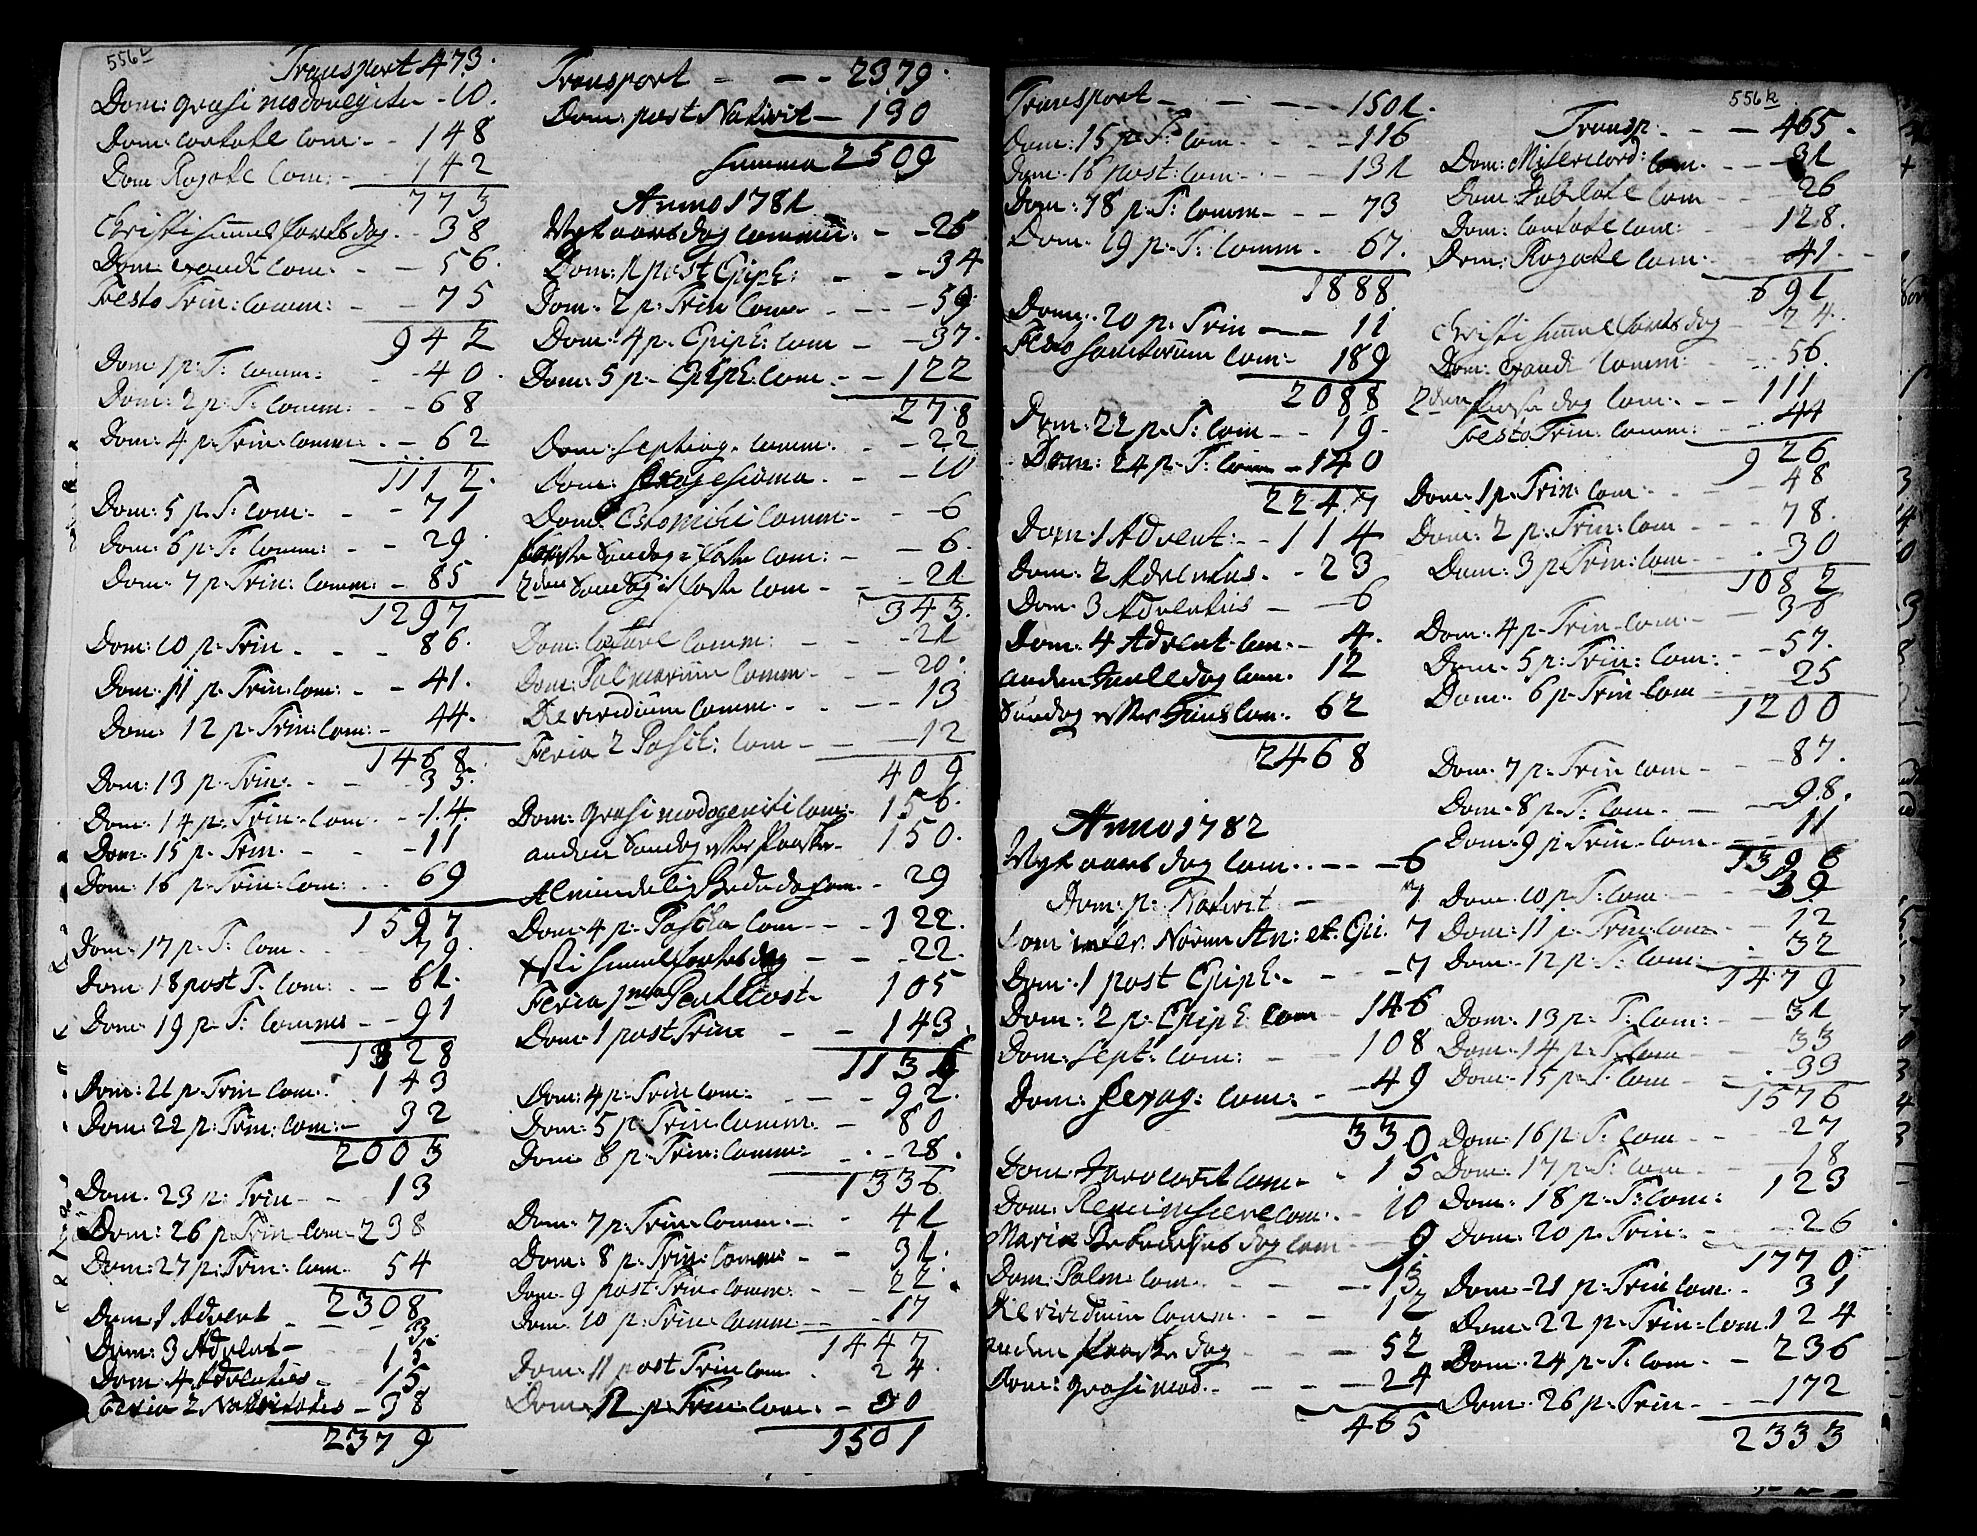 556b
Transport 473.
Dom: qvasimodovegite - 10.
Dom: cantate Com: - - 148
Dom Rogate Com: - - 142
773
Christi Himmelfartsdag. - 38
Dom exaudi Com. - - 56.
Festo Trin: Comm: - - 75
942
Dom 1 p: T: Comm: - - 40.
Dom: 2 p: T: Comm: - - 68
Dom: 4 p: Trin: Comm: - - 62
1112.
Dom: 5 p. T: Com: - - 71
Dom: 6 p: T: Comm: - - 29.
Dom: 7 p: Trin: Comm: - 85
1297
Dom: 10 p: Trin - - - 86.
Dom: 11 p: Trin: Com: - - 41.
Dom: 12 p: Trin: Com: - 44.
1468.
Dom: 13 p: Trin. - - 35.
Dom: 14 p: Trin: Com - - 14.
Dom. 15 p. Trin. - - - 11
Dom. 16 p. Trin: Com: - - 69
1597
Dom. 17 p: T: Com. - - 79.
Dom 18 post T: Com: - - 61.
Dom. 19 p: T: Comm - - 91
1828
Dom: 21 p: Trin Com: 143
Dom: 22 p: Trin: Com: - 32
2003
Dom. 23 p: Trin - - 13
Dom: 26 p Trin Com - 238
Dom: 27 p: Trin: Com. 54
2308
Dom 1 Advent - - - 3.
Dom: 3 Advent - - 15
Dom: 4 Adventus - - 15
Feria 2 Nativitatis - 38
2379
Transport - - - 2379.
Dom: post Nativit - 130
Summa 2509
Anno 1781
Nytaarsdag Comm: - - 25
Dom: 1 post Epiph: - - 34
Dom: 2 p: Trin Com - - - 59.
Dom: 4 p. Epiph: Com - - 37.
Dom: 5 p - Epiph: Com. - - 122
278
Dom: Septuag. Comm: - - 22
Dom: Sexagesioma. - - 10
Dom: Estomihi Comm: - - 6
første Søndag i Faste Com: - - 6.
2den Søndag i Faste Com - - 21
343.
Dom: Lætare Comm: - - 21
Dom: Palmarum Comm - - 20.
Die viridium Comm. - - - 13
Feria 2 Pasch: Com - - - 12
409
Dom: qvasimodogeniti Com: 156.
anden Søndag efter Paaske - 150.
Almindelig Bededag Com. - 29
Dom: 4 p: Pascha Com - - - 122.
Xsti Himmelfartsdag - - - 22.
Feria 1ma Pentecost - 105
Dom: 1 post Trin - - 143.
1136
Dom: 4 p: Trin Com: - - - 92.
Dom: 5 p: Trin Comm. - 80
Dom: 8 p: Trin: Comm: - . - 28.
1336
Dom: 7 p: Trin: Comm: - - 41
Dom: 8 p: Trin: Comm - - 31.
Dom: 9 post Trin: Comm: - - 22.
Dom. 10 p: Trin: Comm: - - 17
1447
Dom: 11 post Trin Com . 24.
Dom: 12 p: Trin: Com. - 30
1501
Transport - - - - 1501.
Dom: 15 p T: Com. - - - 116
Dom. 16 post: Com: - - 131
Dom: 18 p: T: Comm - - - 73
Dom. 19 p: T: Comm - - 67.
1888
Dom. 20 p. Trin - - - 11
Festo Sanctorum Com: - 189
2088
Dom. 22 p. T: Com - - 19.
Dom: 24 p. T: Com - 140
2247
Dom: 1 Advent: - - 114
Dom: 2 Adventus. - 23
Dom. 3 Adventus - - 6
Dom: 4 Advent. Com. - 4.
anden Juuledag Com. 12
Søndag efter Juul Com. 62
2468
Anno 1782
Nytaarsdag Com. . - - - 6
Dom: p: Nativit - 7
Dom inter. Novum An: et. Epi. 7
Dom. 1 post Epiph. - - - 7
Dom: 2 p: Epiph: Com 146
Dom: Sept: Com: - - 108
Dom: Sexag: Com: - - 49
330
Dom Invocavit Com - - 15
Dom: Reminiscere Com: - 10
Mariæ Bebudelsesdag Com - 9
Dom: Palm. Com. - - - 13.
Die viridium Comm. - - 12
anden Paaskedag - - - 52
Dom: qvasimod. - - - 24
465
556k
Transp. - - - 465.
Dom: Misericord: Com. - - 31
Dom Jubilate Com - - 26
Dom: Cantate Com: - 128.
Dom: Rogate Com: - - 41.
691
Christi Himmelfartsdag - 24.
Dom: Exaudi Comm: - 56.
2den Pintsedag Com: - - 111
Festo Trin: Comm: - - 44
926
Dom. 1 p. Trin: Com: - - 48
Dom: 2 p: Trin: Com - - - 78.
Dom: 3 p: Trin: Com - . - 30
1082
Dom: 4 p - Trin - Com: - - 36
Dom: 5 p: Trin: Com: - 57.
Dom: 6 p - Trin Com - 25
1200
Dom: 7 p - Trin Com - - 87.
Dom: 8 p: T: Com. - - 98.
Dom: 9 p: Trin - Com. - 11
1396
Dom: 10 p: T: Com. - - 39.
Dom: 11 p - Trin: Com - - 12
Dom: 12 p: T: Com: - 32
1479
Dom: 13 p: T: Com: - - 31
Dom: 14 p - T: Com - - 33
Dom: 15 p: T: Com - . 33
1576
Dom: 16 p: T: Com - - 27
Dom: 17 p: T: Com. - - 18
Dom: 18 p. T: Com: 123
Dom: 20 p. Trin: - - 26
1770
Dom: 21 p: Trin Com. - 31
Dom: 22 p. Trin: Com. 124
Dom. 24 p - T: Com. - 236
Dom. 26 p. Trin - - 172
2333